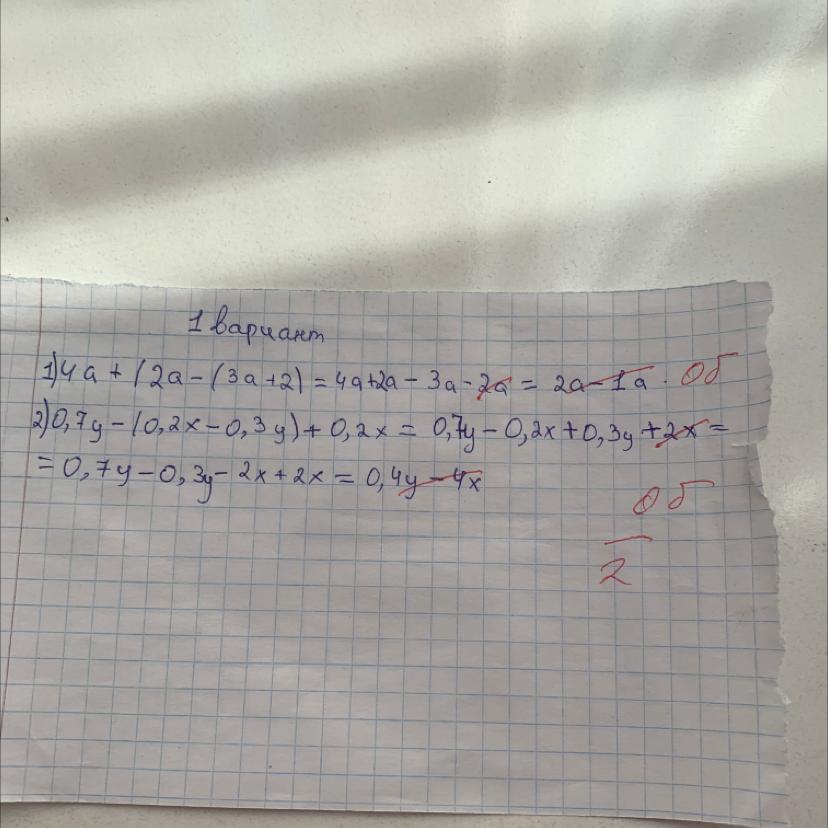 1 вариант
1) 4a + (2a - (3a + 2) = 4a + 2a - 3a - 2a = 2a - 1a. 0б
2) 0,7y - (0,2x - 0,3y) + 0,2x = 0,7y - 0,2x + 0,3y + 2x =
= 0,7y - 0,3y - 2x + 2x = 0,4y - 4x
0б
2